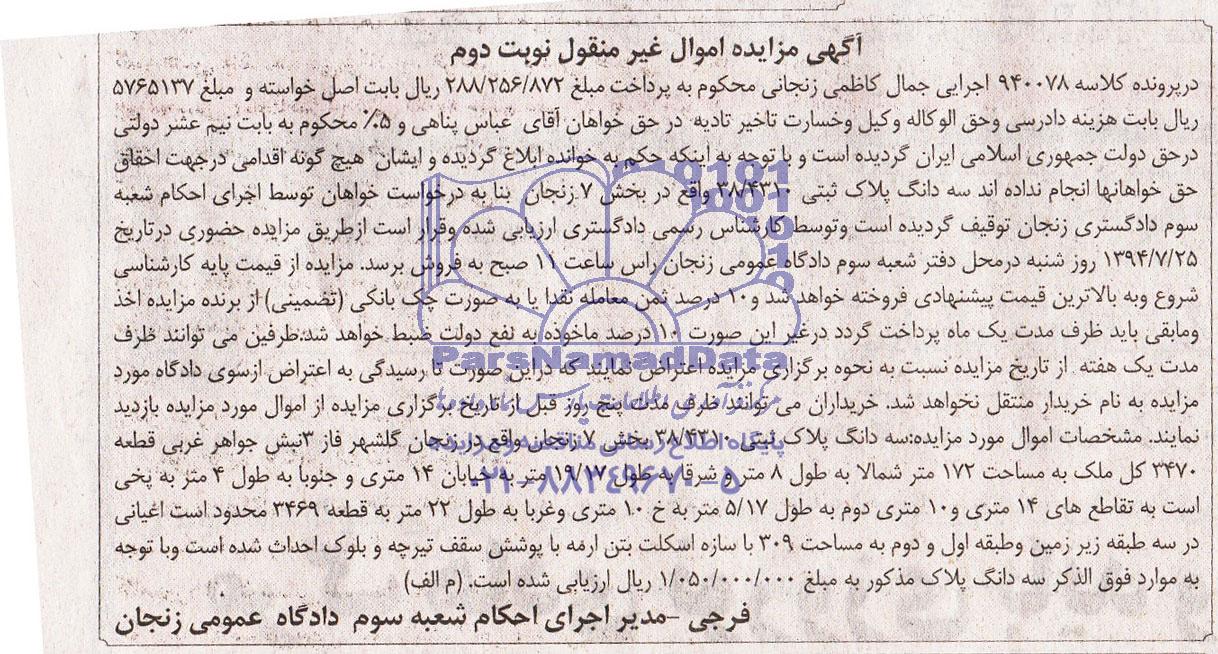 آگهی مزایده اموال غیر منقول نوبت دوم
درپرونده کلاسه ۹۴۰۰۷۸ اجرایی جمال کاظمی زنجانی محکوم به پرداخت مبلغ ۲۸۸/۲۵۶/۸۷۲ ریال بابت اصل خواسته و مبلغ ۵۷۶۵۱۳۷
ریال بابت هزینه دادرسی وحق الوکاله وکیل وخسارت تاخیر تادیه در حق خواهان آقای عباس پناهی و ۵% محکوم به بابت نیم عشر دولتی
درحق دولت جمهوری اسلامی ایران گردیده است و با توجه به اینکه حکم به خوانده ابلاغ گردیده و ایشان هیچ گونه اقدامی درجهت احقاق
حق خواهانها انجام نداده اند سه دانگ پلاک ثبتی ۳۸/۴۳۱۰ واقع در بخش ۷ زنجان بنا به درخواست خواهان توسط اجرای احکام شعبه
سوم دادگستری زنجان توقیف گردیده است وتوسط کارشناس رسمی دادگستری ارزیابی شده وقرار است ازطریق مزایده حضوری درتاریخ
۱۳۹۴/۷/۲۵ روز شنبه درمحل دفتر شعبه سوم دادگاه عمومی زنجان راس ساعت ۱۱ صبح به فروش برسد. مزایده از قیمت پایه کارشناسی
شروع وبه بالاترین قیمت پیشنهادی فروخته خواهد شد و۱۰ درصد ثمن معامله نقدا یا به صورت چک بانکی (تضمینی) از برنده مزایده اخذ
ومابقی باید ظرف مدت یک ماه پرداخت گردد درغیر این صورت ۱۰ درصد ماخوذه به نفع دولت ضبط خواهد شد.طرفین می توانند ظرف
مدت یک هفته از تاریخ مزایده نسبت به نحوه برگزاری مزایده اعتراض نمایند که دراین صورت تا رسیدگی به اعتراض ازسوی دادگاه مورد
مزایده به نام خریدار منتقل نخواهد شد. خریداران می توانند ظرف مدت پنج روز قبل از تاریخ برگزاری مزایده از اموال مورد مزایده بازدید
نمایند. مشخصات اموال مورد مزایده:سه دانگ پلاک ثبتی ۳۸/۴۳۱۰ بخش ۷ زنجان واقع در زنجان گلشهر فاز ۳نبش جواهر غربی قطعه
۳۴۷۰ کل ملک به مساحت ۱۷۲ متر شمالا به طول ۸ متر و شرقا به طول ۱۹/۱۷ متر به خیابان ۱۴ متری و جنوبا به طول ۴ متر به پخی
است به تقاطع های ۱۴ متری و۱۰ متری دوم به طول ۵/۱۷ متر به خ ۱۰ متری وغربا به طول ۲۲ متر به قطعه ۳۴۶۹ محدود است اعیانی
در سه طبقه زیر زمین وطبقه اول و دوم به مساحت ۳۰۹ با سازه اسکلت بتن ارمه با پوشش سقف تیرچه و بلوک احداث شده است وبا توجه
به موارد فوق الذکر سه دانگ پلاک مذکور به مبلغ ۱/۰۵۰/۰۰۰/۰۰۰ ریال ارزیابی شده است. (م الف)
فرجی –مدیر اجرای احکام شعبه سوم دادگاه عمومی زنجان
ParsNamadData
پایگاه اطلاع رسانی مناقصه و مزایده
۰۲۱-۸۸۳۴۹۶۷۰-۵